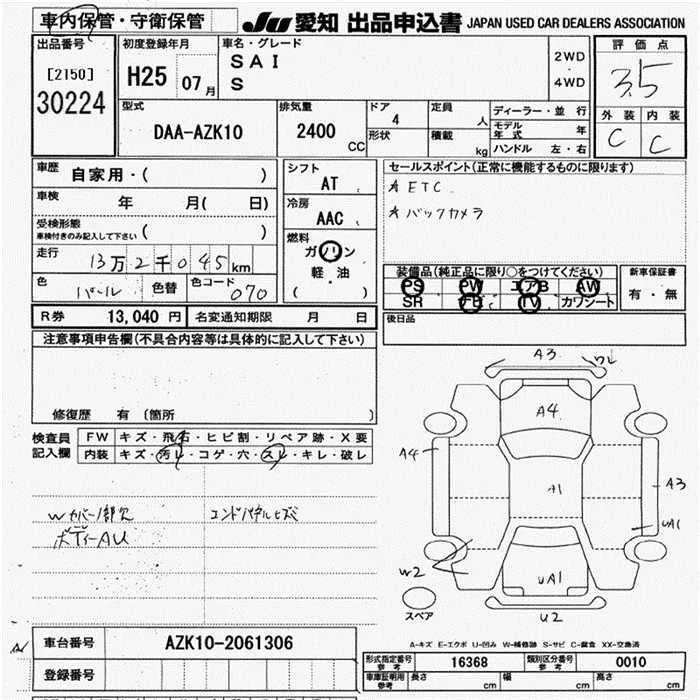 車内保管・守衛保管
JU 愛知 出品申込書 JAPAN USED CAR DEALERS ASSOCIATION
出品番号
[2150]
30224
初度登録年月
H25 07月
車名・グレード
SAI
S
2WD
・
4WD
評価点
3.5
外装 内装
C C
型式
DAA-AZK10
排気量
2400
CC
ドア
4
形状
定員
人
積載
kg
ディーラー・並行
モデル年式 年
ハンドル 左・右
車歴
自家用・( )
車検
年 月( 日)
受検形態
車検付きのみ記入して下さい ( )
走行
13万2千045km
色
パール
色替
色コード
070
シフト
AT
冷房
AAC
燃料
ガソリン
軽・油
( )
セールスポイント(正常に機能するものに限ります)
☆ETC
☆バックカメラ
装備品(純正品に限り○をつけてください)
PS PW エアB AW
SR TV カワシート
新車保証書
有・無
後日品
R券 13,040 円 名変通知期限 月 日
注意事項申告欄(不具合内容等は具体的に記入して下さい)
修復歴 有 〔箇所 〕
検査員記入欄
FW キズ・飛石・ヒビ割・リペア跡・X要
内装 キズ・汚レ・コゲ・穴・スレ・キレ・破レ
Wカバー1部欠
ボディーAU
エンドパネルヒズミ
A3
ワレ
A4
A4
A1
A3
UA1
W2
UA1
U2
スペア
A-キズ E-エクボ U-凹み W-補修跡 S-サビ C-腐食 XX-交換済
車台番号 AZK10-2061306
登録番号
型式指定番号 参考 16368 類別区分番号 参考 0010
車庫証明用 参考 長さ cm 幅 cm 高さ cm